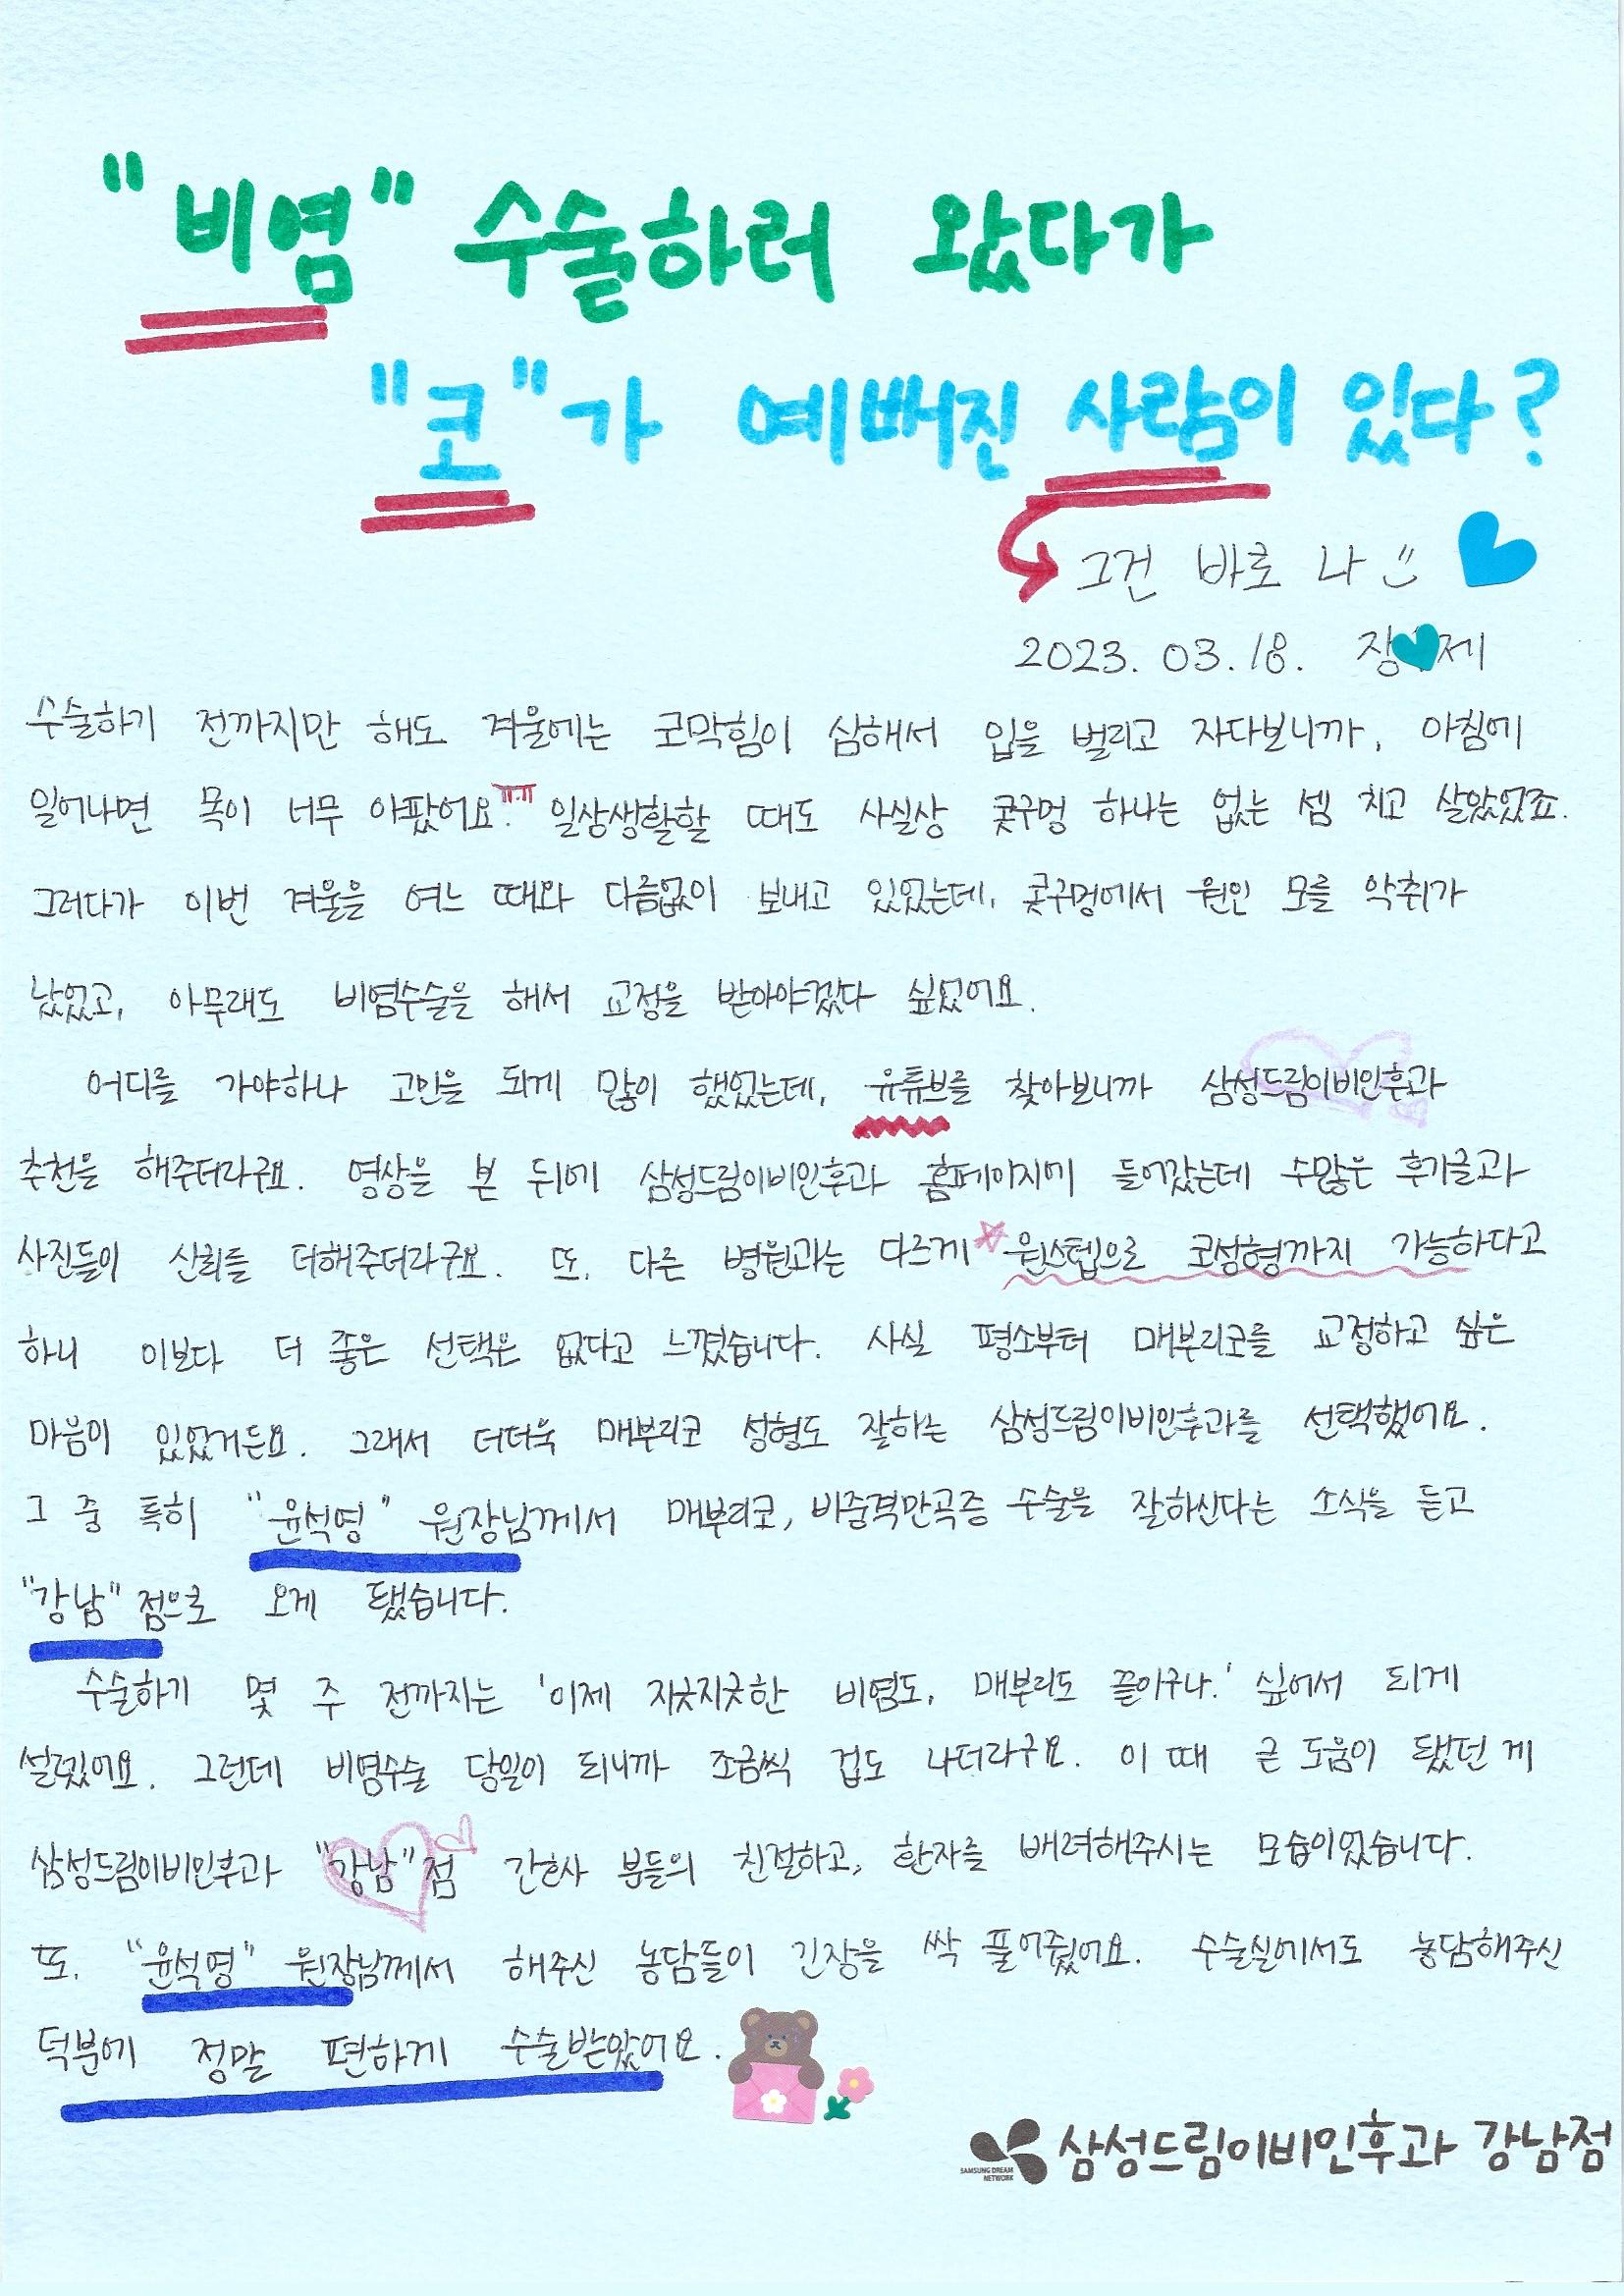 "비염" 수술하러 왔다가
"코"가 예뻐진 사람이 있다?
그건 바로 나
2023. 03. 18. 장 제
수술하기 전까지만 해도 겨울에는 코막힘이 심해서 입을 벌리고 자다보니까, 아침에
일어나면 목이 너무 아팠어요ㅠㅠ 일상생활할 때도 사실상 콧구멍 하나는 없는 셈 치고 살았었죠.
그러다가 이번 겨울을 여느 때와 다름없이 보내고 있었는데, 콧구멍에서 원인 모를 악취가
났었고, 아무래도 비염수술을 해서 교정을 받아야겠다 싶었어요.
어디를 가야하나 고민을 되게 많이 했었는데, 유튜브를 찾아보니까 삼성드림이비인후과
추천을 해주더라구요. 영상을 본 뒤에 삼성드림이비인후과 홈페이지에 들어갔는데 수많은 후기글과
사진들이 신뢰를 더해주더라구요. 또, 다른 병원과는 다르게 원스텝으로 코성형까지 가능하다고
하니 이보다 더 좋은 선택은 없다고 느꼈습니다. 사실 평소부터 매부리코를 교정하고 싶은
마음이 있었거든요. 그래서 더더욱 매부리코 성형도 잘하는 삼성드림이비인후과를 선택했어요.
그 중 특히 "윤석영" 원장님께서 매부리코, 비중격만곡증 수술을 잘하신다는 소식을 듣고
"강남"점으로 오게 됐습니다.
수술하기 몇 주 전까지는 '이제 지긋지긋한 비염도, 매부리도 끝이구나.' 싶어서 되게
설렜어요. 그런데 비염수술 당일이 되니까 조금씩 겁도 나더라구요. 이 때 큰 도움이 됐던 게
삼성드림이비인후과 "강남"점 간호사 분들의 친절하고, 환자를 배려해주시는 모습이었습니다.
또, "윤석영" 원장님께서 해주신 농담들이 긴장을 싹 풀어줬어요. 수술실에서도 농담해주신
덕분에 정말 편하게 수술받았어요.
SAMSUNG DREAM NETWORK 삼성드림이비인후과 강남점